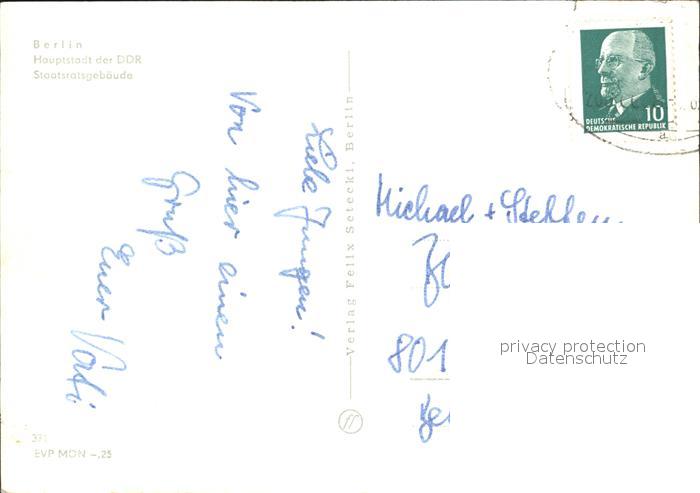 Berlin
Hauptstadt der DDR
Staatsratsgebäude
Liebe Jungen!
Von hier einen
Gruß
Euer Vati.
Verlag Felix Setecki, Berlin
DEUTSCHE
DEMOKRATISCHE REPUBLIK
10
Michael + Steffen
801
privacy protection
Datenschutz
EVP MDN -,25